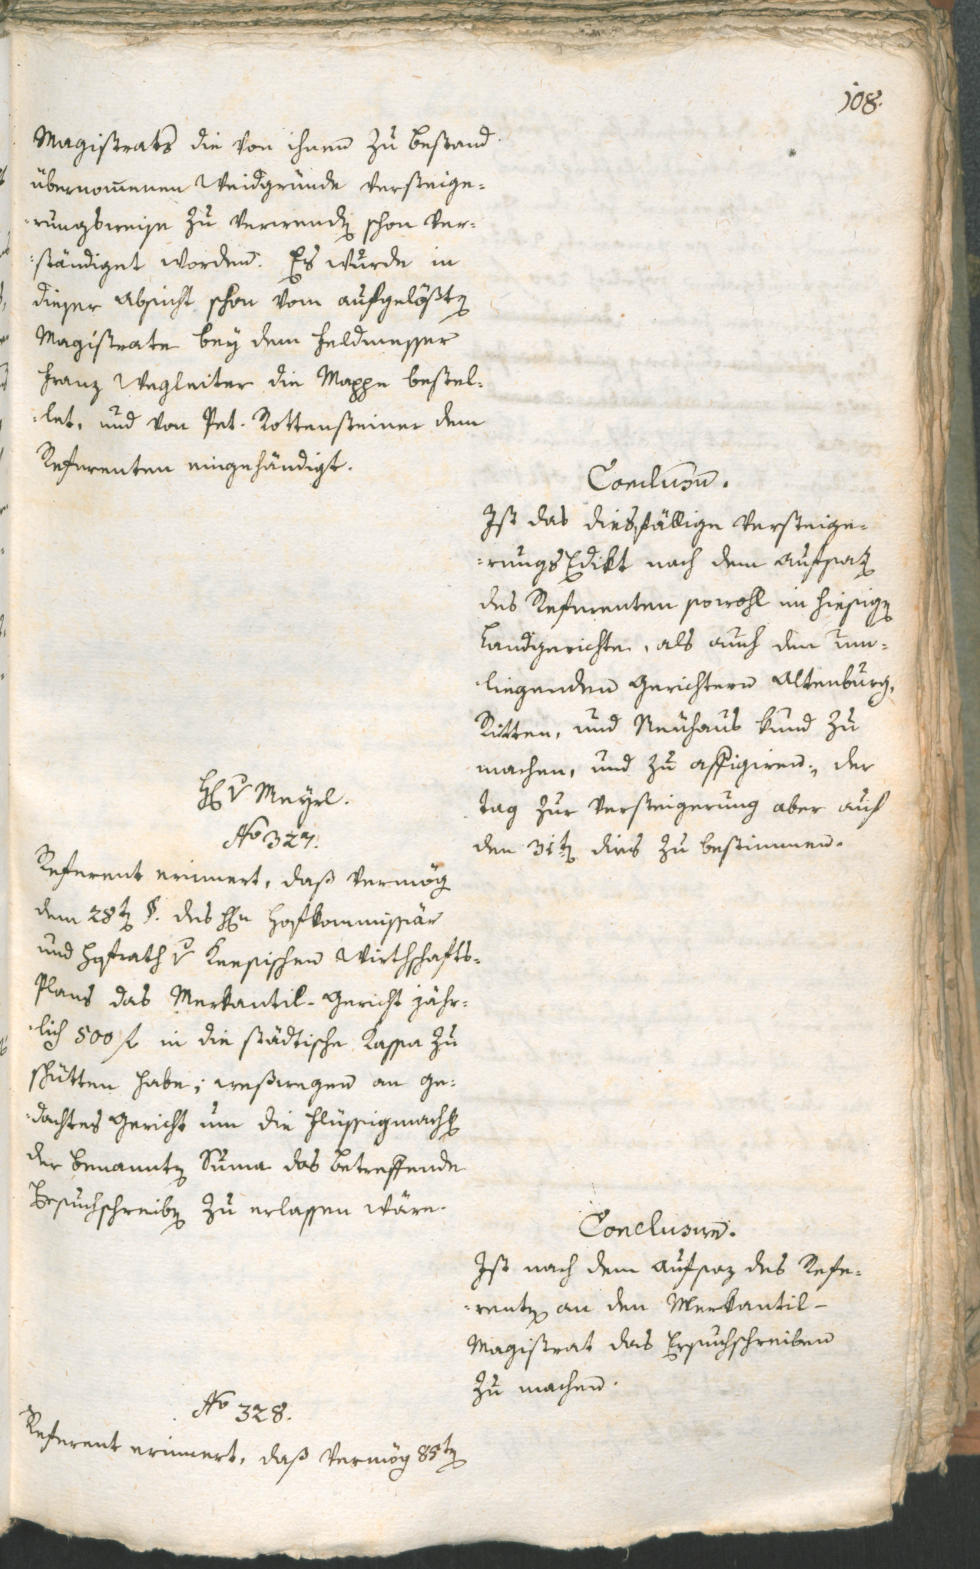 108.
Magistrats die von ihnen zu bestand
übernommenen Weidgründe versteige=
=rungsweise zu verwenden schon ver=
=ständiget worden. Es wurde in
dieser Absicht schon vom aufgelößten
Magistrate bey dem Feldmesser
Franz Wegleiter die Mappe bestel=
=let, und von Pet. Rottensteiner dem
Referenten eingehändigt.
Conclusum.
Ist das diesfällige Versteige=
=rungs Edikt nach dem Aufsatz
des Referenten sowohl im hiesigen
Landgerichte, als auch den um=
=liegenden Gerichtern Altenburg,
Ritten, und Neuhaus kund zu
machen, und zu affigiren, der
Tag zur Versteigerung aber auf
den 31ten dies zu bestimmen.
H v Mayrl.
No 327.
Referent erinnert, daß vermög
dem 28ten §. des Hrn Hofkommissär
und Hofrath v Keesischen Wirthschafts=
Plans das Merkantil-Gericht jähr=
=lich 500 f in die städtische Kassa zu
schütten habe; weßwegen an ge=
=dachtes Gericht um die Flüssigmachung
der benannten Suma das betreffende
Ersuchschreiben zu erlassen wäre.
Conclusum.
Ist nach dem Aufsaz des Refe=
=renten an den Merkantil-
Magistrat das Ersuchschreiben
zu machen.
No 328.
Referent erinnert, daß vermög 85ten